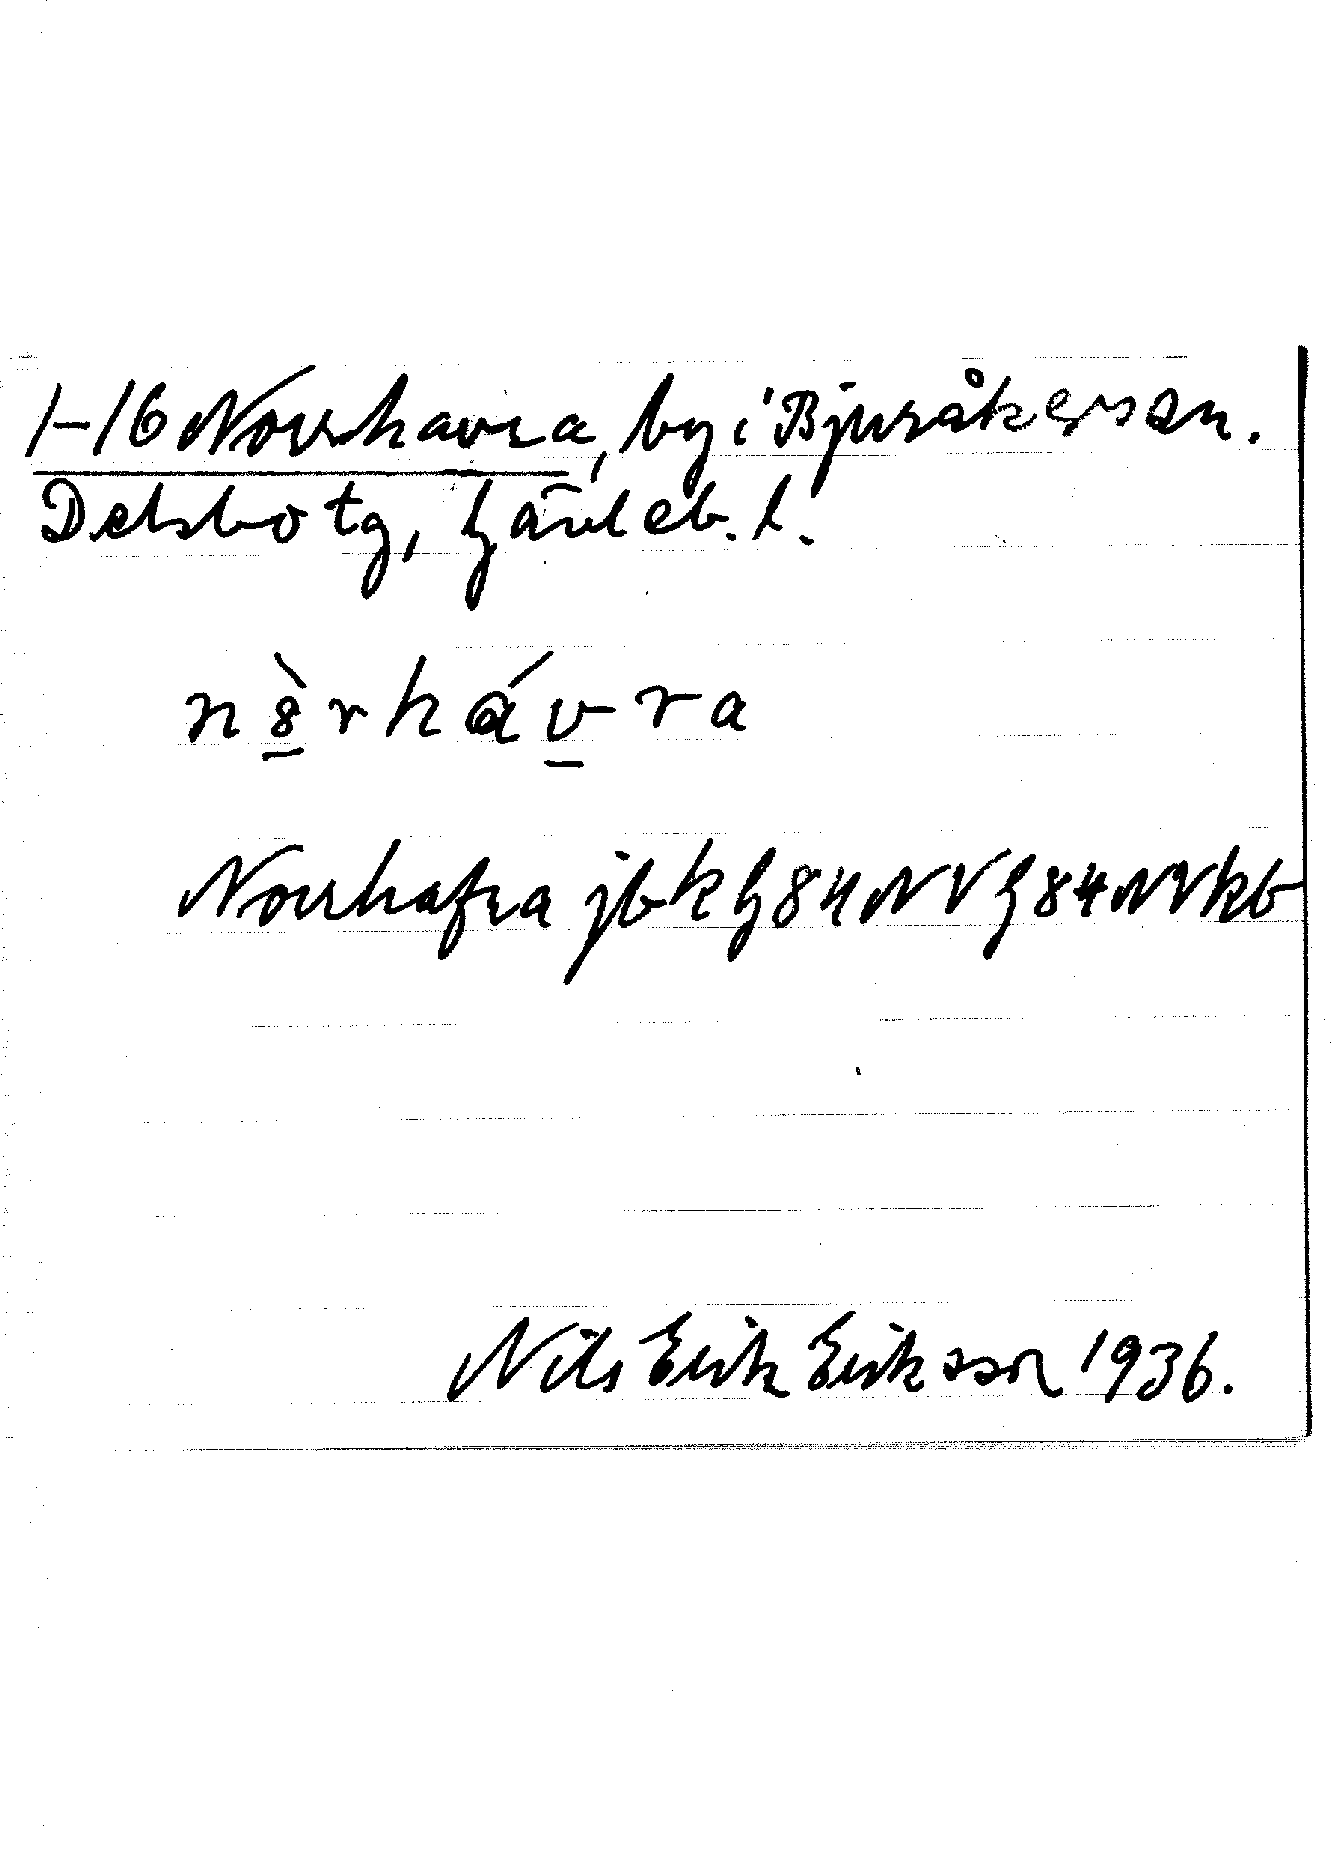 1-16 Norrhavra, by i Bjuråkers sn.
Delsbo tg, Gävleb. l.
n8̱̀rháv̱ra
Norrhafra jbk G84NV G84NVkb
Nils Erik Eriksson 1936.